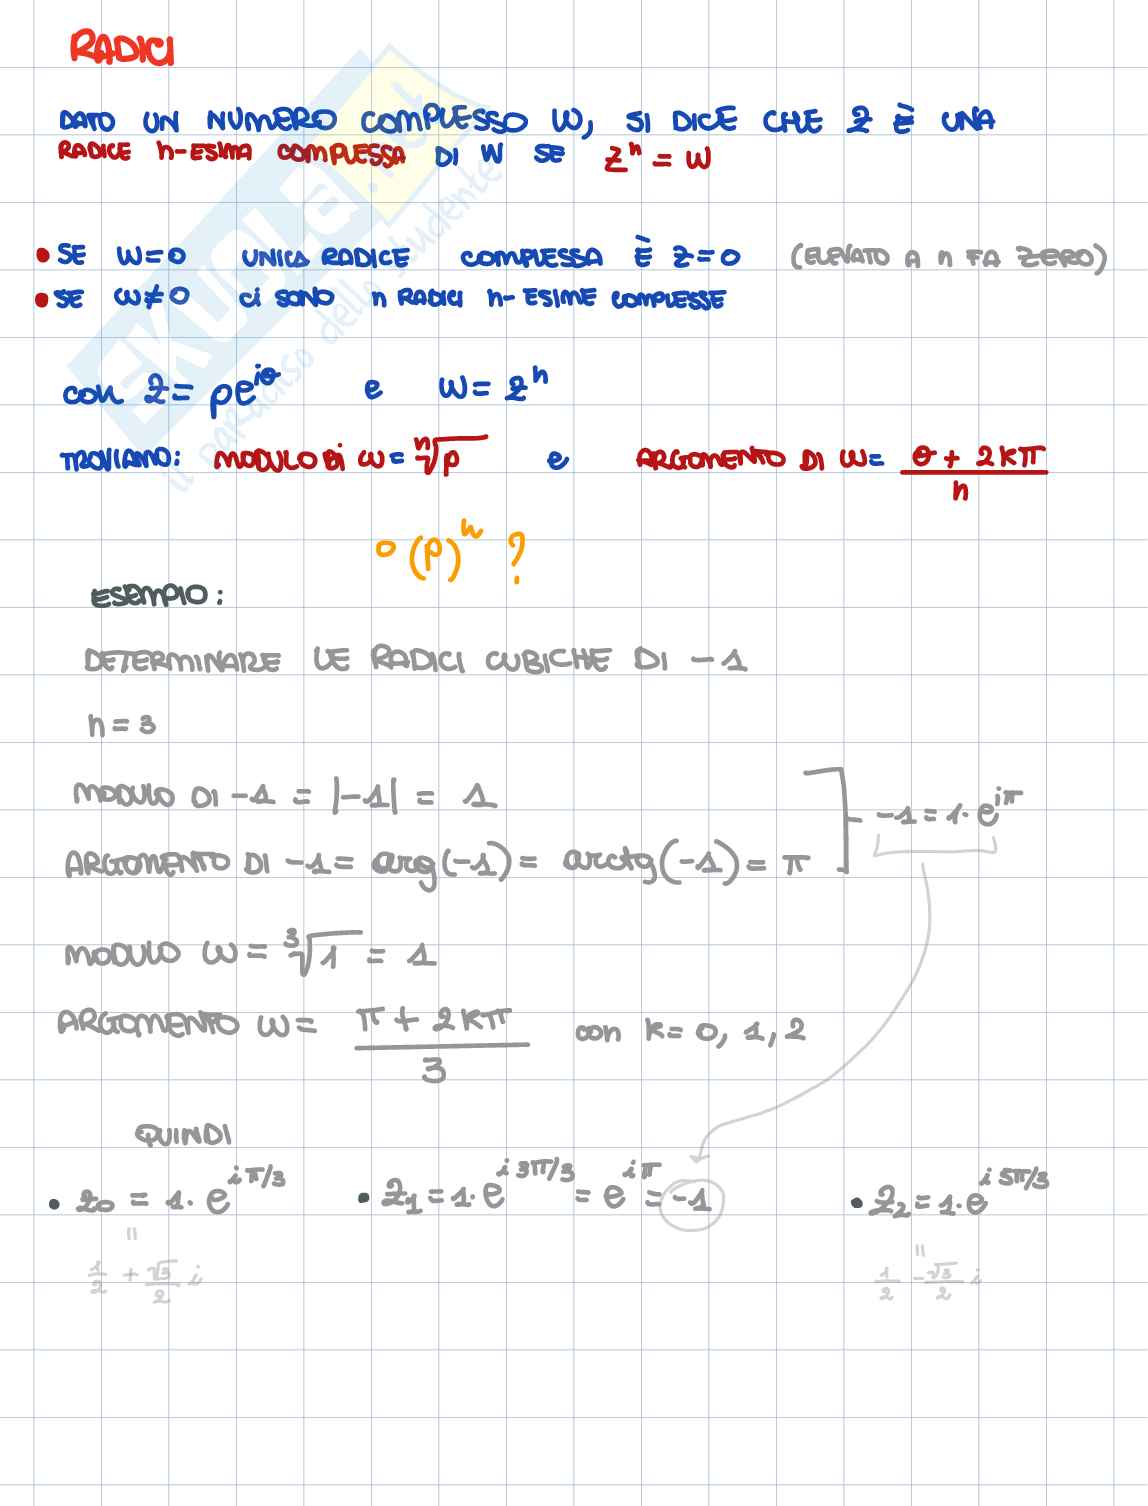 RADICI
DATO UN NUMERO COMPLESSO W, SI DICE CHE Z È UNA
RADICE n-ESIMA COMPLESSA DI W SE zⁿ = w
• SE W=0 UNICA RADICE COMPLESSA È Z=0 (ELEVATO A n FA ZERO)
• SE W≠0 CI SONO n RADICI n-ESIME COMPLESSE
con Z = ρe^{iθ} e W = Zⁿ
TROVIAMO: MODULO DI W = ⁿ√ρ e ARGOMENTO DI W = (θ + 2kπ)/n
o (ρ)ⁿ ?
ESEMPIO:
DETERMINARE LE RADICI CUBICHE DI -1
n = 3
MODULO DI -1 = |-1| = 1
-1 = 1· e^{iπ}
ARGOMENTO DI -1 = arg(-1) = arctg(-1) = π
MODULO W = ³√1 = 1
ARGOMENTO W = (π + 2kπ)/3 con k = 0, 1, 2
QUINDI
• z₀ = 1· e^{iπ/3} • Z₁ = 1· e^{i3π/3} = e^{iπ} = -1 • Z₂ = 1· e^{i5π/3}
" "
1/2 + √3/2 i 1/2 - √3/2 i
EKUOLA.net
il paradiso dello studente